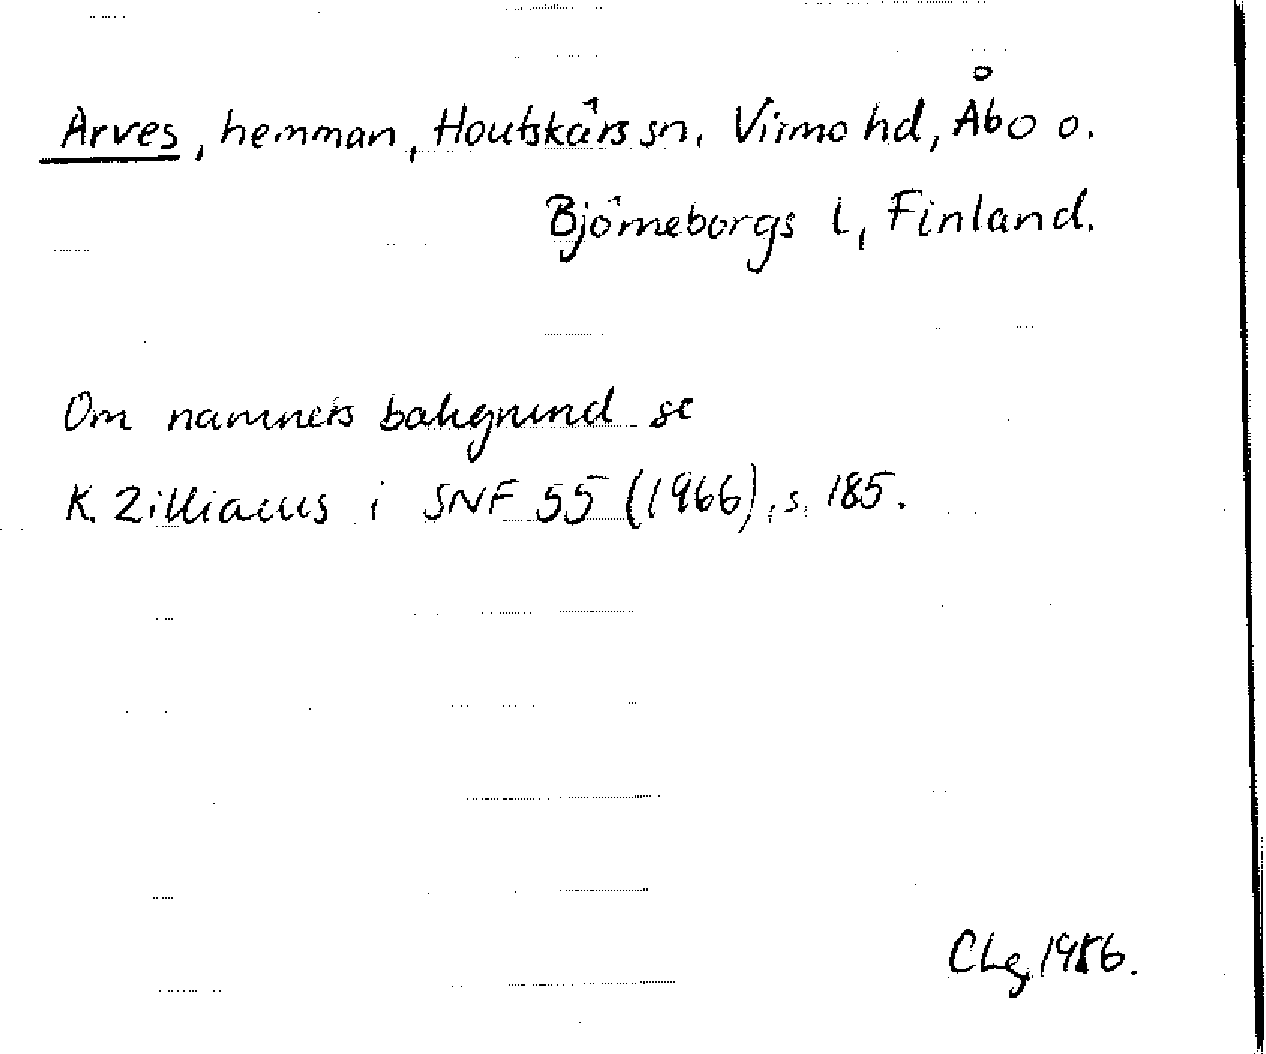 Arves, hemman, Houtskärs sn, Virmo hd, Åbo o.
Björneborgs l, Finland.
Om namnets bakgrund se
K. Zilliacus i SNF 55 (1966), s. 185.
CLg 1986.